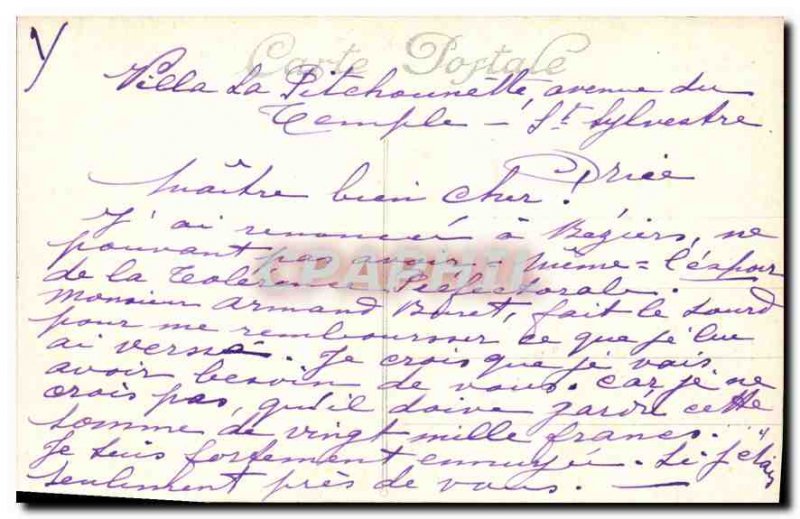 Carte Postale
Villa La Pitchounette, avenue du
Temple - St Sylvestre
Maître bien cher!
J'ai renoncé à Béziers, ne
pouvant pas avoir - même = l'espoir
de la Tolérence Préfectorale.
CPAPHIL
Monsieur Armand Buret, fait le sourd
pour me rembourser ce que je lui
ai versé. Je crois que je vais
avoir besoin de vous. Car je ne
crois pas, qu'il doive garder cette
somme de vingt mille francs.
Je suis fortement ennuyé. Si j'étais
seulement près de vous. —